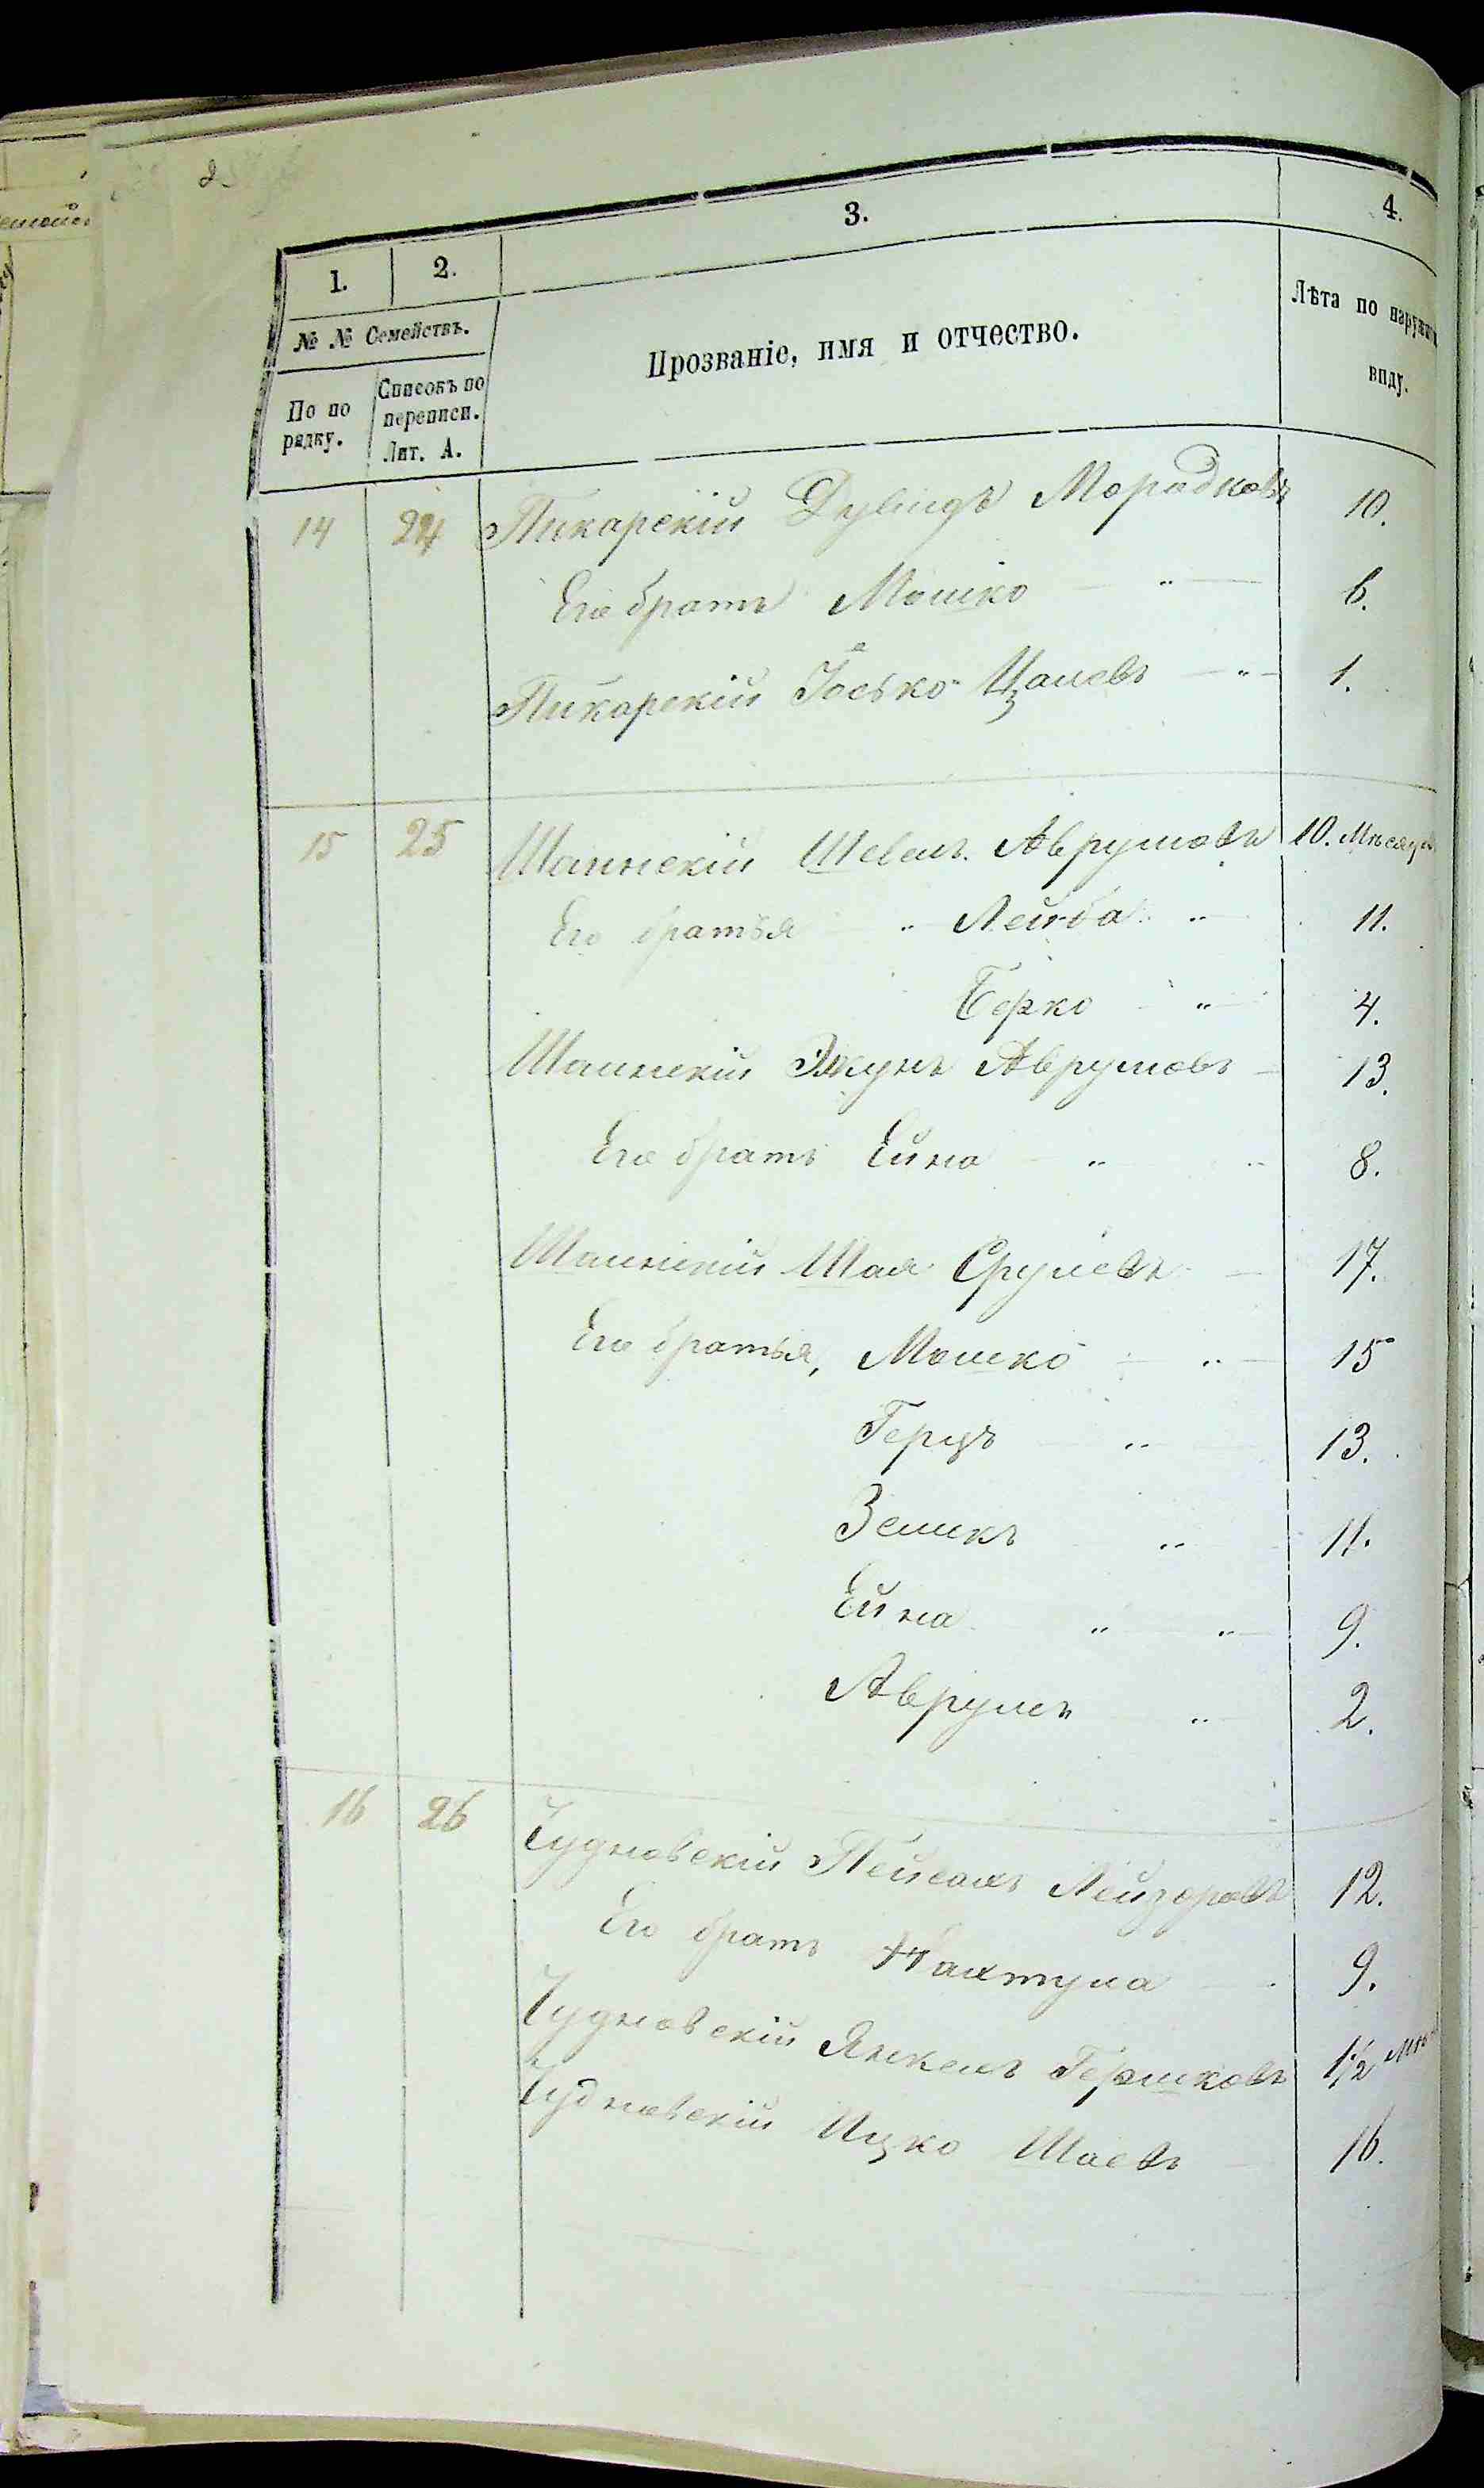 3.
4.
1.
2.
№ № Семействъ.
Прозваніе, имя и отчество.
Лѣта по наружн
виду.
По по
рядку.
Списокъ по
переписи.
Лит. А.
14 24 Пикарскій Дувидъ Мордковъ 10.
Его братъ Мошко — " — 6.
Пикарскій Іосько Цалевъ — " — 1.
15 25 Шаинскій Шевель Аврумовъ 10. Мѣсяцев
Его братья " Лейба " 11.
Берко " 4.
Шаинскій Якунъ Аврумовъ — 13.
Его братъ Ейна " " 8.
Шаинскій Шая Срулевъ — 17.
Его братья, Мошко — " — 15
Герцъ " 13.
Зеликъ " 11.
Ейна " " 9.
Аврумъ " 2.
16 26 Чудновскій Пейсахъ Лейзоровъ 12.
Его братъ Нахтула 9.
Чудновскій Янкель Гершковъ 1½ мѣс
Чудновскій Ицко Шаевъ — 16.